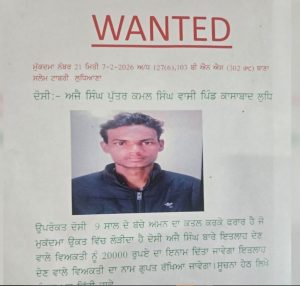 WANTED
ਮੁੱਕਦਮਾ ਨੰਬਰ 21 ਮਿਤੀ 7-2-2026 ਅ/ਧ (27(6),103 ਬੀ ਐਨ ਐਸ (302 IPC) ਥਾਣਾ
ਸਲੇਮ ਟਾਬਰੀ ਲੁਧਿਆਣਾ
ਦੋਸੀ:- ਅਜੈ ਸਿੰਘ ਪੁੱਤਰ ਕਮਲ ਸਿੰਘ ਵਾਸੀ ਪਿੰਡ ਕਾਸਾਬਾਦ ਲੁਧਿ
ਉਪਰੋਕਤ ਦੋਸੀ 9 ਸਾਲ ਦੇ ਬੱਚੇ ਅਮਨ ਦਾ ਕਤਲ ਕਰਕੇ ਫਰਾਰ ਹੈ ਜੋ
ਮੁਕੱਦਮਾ ਉਕਤ ਵਿੱਚ ਲੋੜੀਂਦਾ ਹੈ ਦੋਸੀ ਅਜੈ ਸਿੰਘ ਬਾਰੇ ਇਤਲਾਹ ਦੇਣ
ਵਾਲੇ ਵਿਅਕਤੀ ਨੂੰ 20000 ਰੁਪਏ ਦਾ ਇਨਾਮ ਦਿੱਤਾ ਜਾਵੇਗਾ ਇਤਲਾਹ
ਦੇਣ ਵਾਲੇ ਵਿਅਕਤੀ ਦਾ ਨਾਮ ਗੁਪਤ ਰੱਖਿਆ ਜਾਵੇਗਾ।ਸੂਚਨਾ ਹੇਠ ਲਿਖੇ